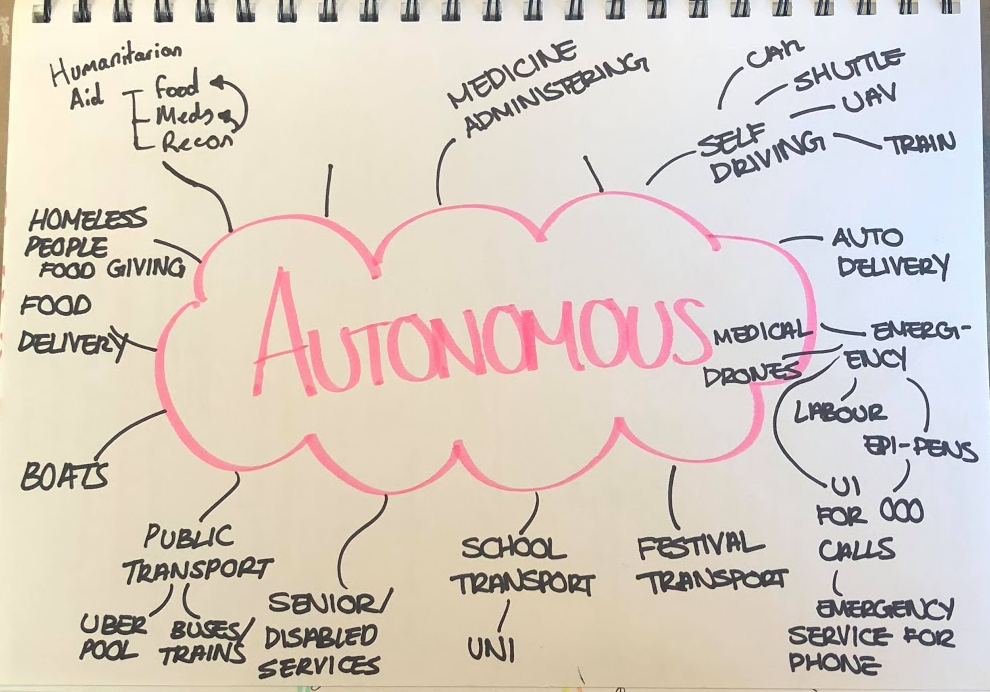 Humanitarian
Aid
Food
Meds
Recon
MEDICINE
ADMINISTERING
SELF
DRIVING
CAR
SHUTTLE
UAV
TRAIN
HOMELESS
PEOPLE
FOOD GIVING
FOOD
DELIVERY
BOATS
AUTONOMOUS
AUTO
DELIVERY
MEDICAL
DRONES
EMERGI-
ENCY
LABOUR
EPI-PENS
UI
FOR 000
CALLS
EMERGENCY
SERVICE FOR
PHONE
PUBLIC
TRANSPORT
UBER
POOL
BUSES/
TRAINS
SENIOR/
DISABLED
SERVICES
SCHOOL
TRANSPORT
UNI
FESTIVAL
TRANSPORT